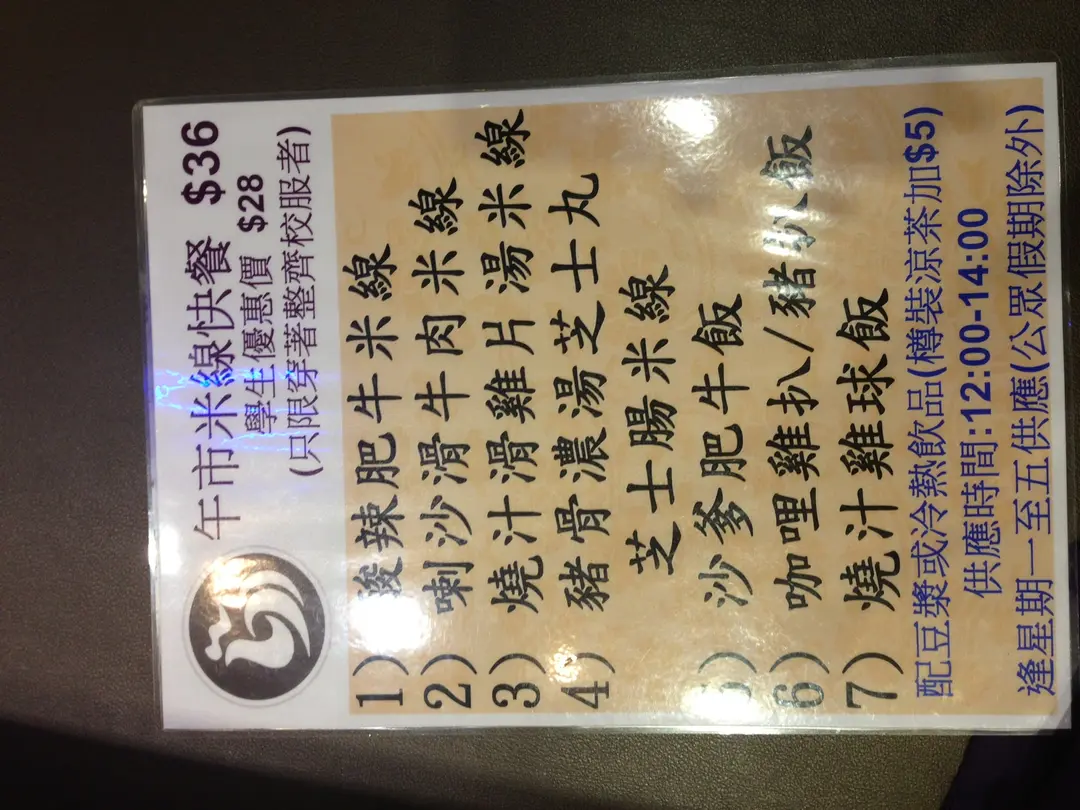 午市米線快餐 $36
學生優惠價 $28
(只限穿著整齊校服者)
1) 酸辣肥牛米線
2) 喇沙滑牛肉米線
3) 燒汁滑雞片湯米線
4) 豬骨濃湯芝士丸
芝士腸米線
5) 沙爹肥牛飯
6) 咖哩雞扒/豬扒飯
7) 燒汁雞球飯
配豆漿或冷熱飲品(樽裝涼茶加$5)
供應時間:12:00-14:00
逢星期一至五供應(公眾假期除外)